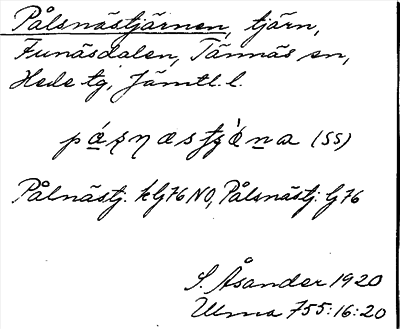 Pålsnästjärnen, tjärn,
Funäsdalen, Tännäs sn,
Hede tg, Jämtl. l.
(SS)
Pålnästj. kG76 NO, Pålsnästj: G76
S. Åsander 1920
Ulma 755:16:20